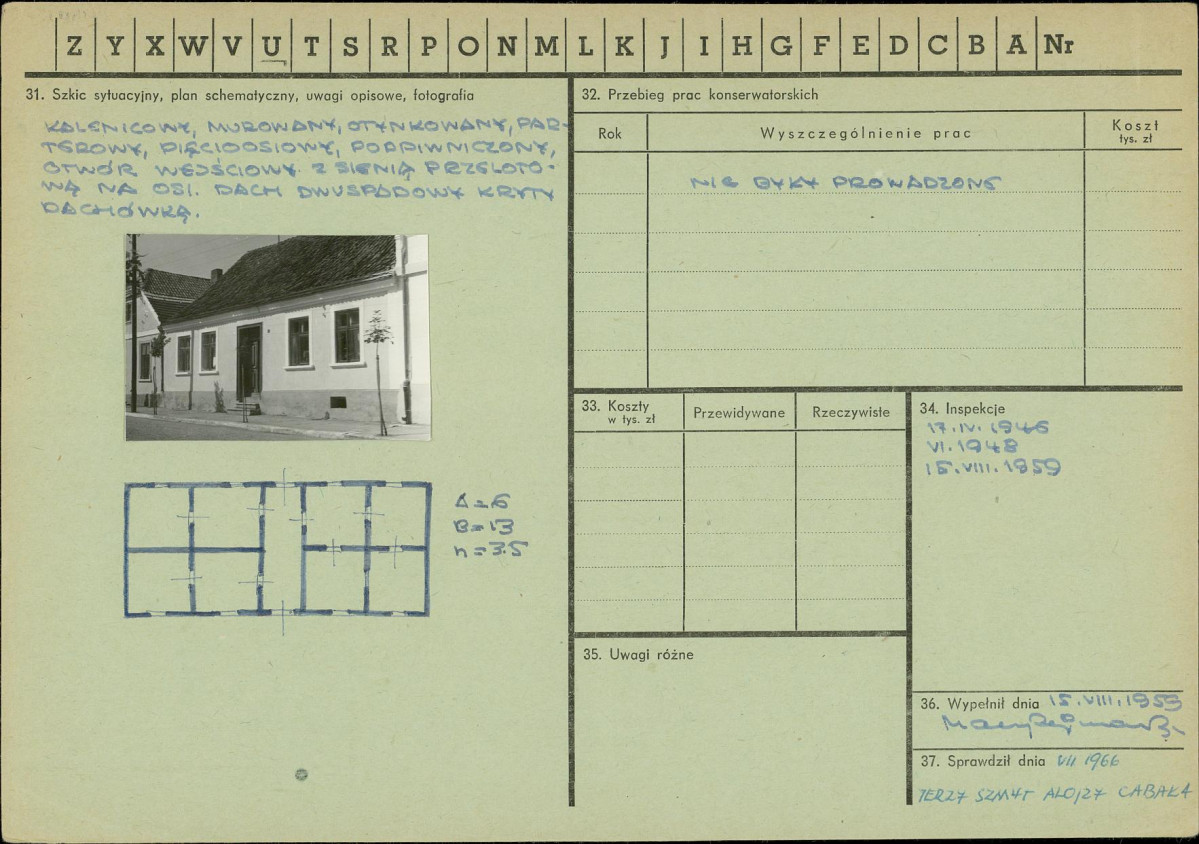 Z Y X W V U T S R P O N M L K J I H G F E D C B A Nr
31. Szkic sytuacyjny, plan schematyczny, uwagi opisowe, fotografia
KALENICOWY, MUROWANY, OTYNKOWANY, PAR-
TEROWY, PIĘCIOOSIOWY, PODPIWNICZONY,
OTWÓR WEJŚCIOWY Z SIENIĄ PRZELOTO-
WĄ NA OSI. DACH DWUSPADOWY KRYTY
DACHÓWKĄ.
A=6
B=13
h=3.5
32. Przebieg prac konserwatorskich
Rok
Wyszczególnienie prac
Koszt
tys. zł
NIE BYŁY PROWADZONE
33. Koszty
w tys. zł
Przewidywane
Rzeczywiste
34. Inspekcje
17.IV.1946
VI.1948
15.VIII.1959
35. Uwagi różne
36. Wypełnił dnia 15.VIII.1959
37. Sprawdził dnia VII 1966
JERZY SZMYT ALOJZY CABAŁA